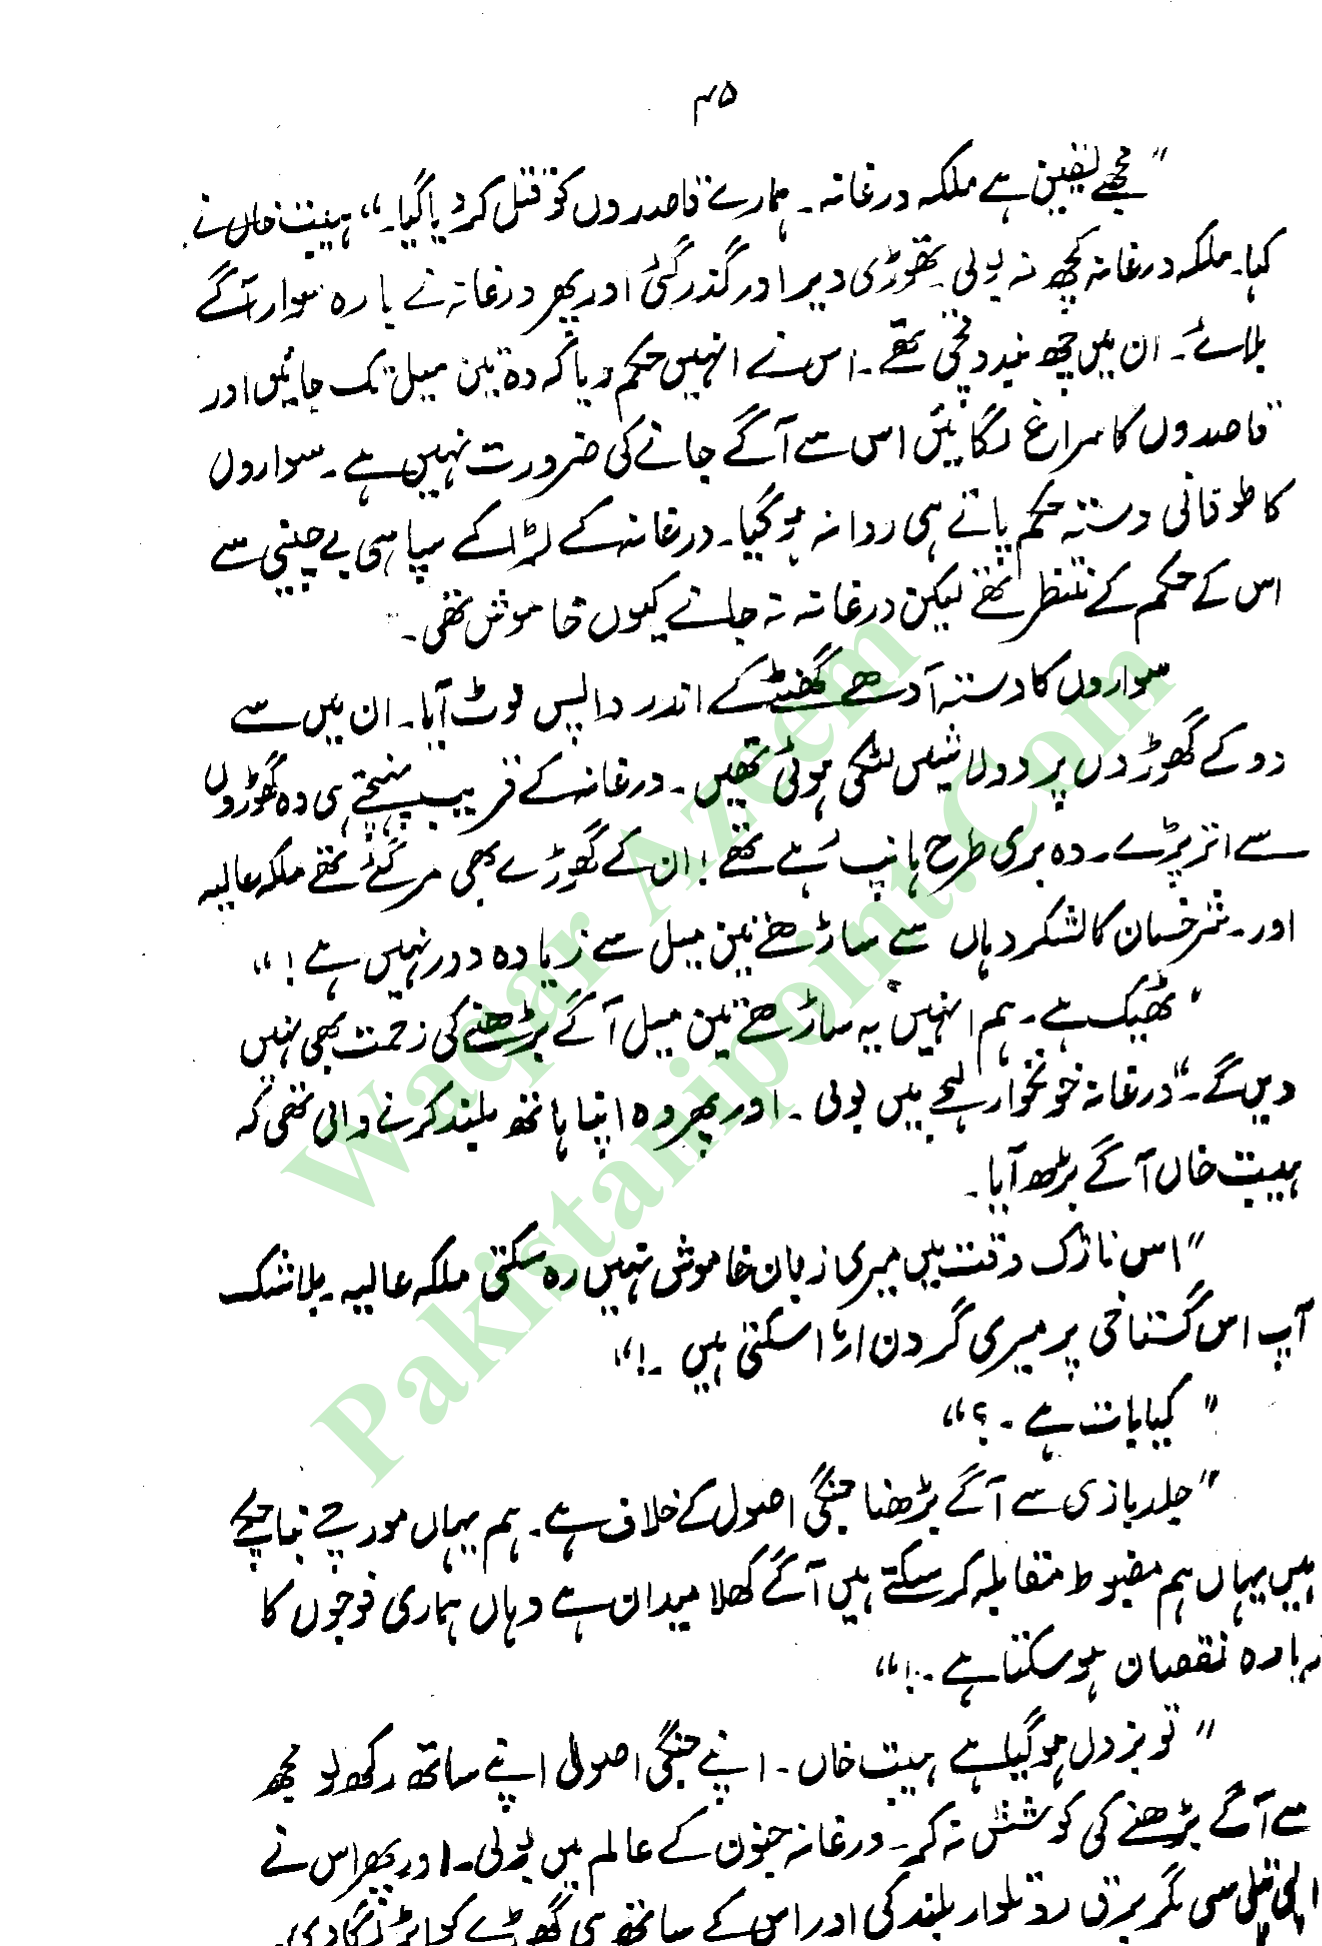 ۴۵
"مجھے یقین ہے ملکہ درغانہ۔ ہمارے قاصدوں کو قتل کر دیا گیا۔" ہیبت خاں نے
کہا۔ ملکہ درغانہ کچھ نہ بولی۔ تھوڑی دیر اور گذر گئی اور پھر درغانہ نے بارہ سوار آگے
بلائے۔ ان میں چھ بندوقچی تھے۔ اس نے انہیں حکم دیا کہ وہ تین میل تک جائیں اور
قاصدوں کا سراغ لگائیں اس سے آگے جانے کی ضرورت نہیں ہے۔ سواروں
کا طوفانی دستہ حکم پاتے ہی روانہ ہو گیا۔ درغانہ کے لڑاکے سپاہی بے چینی سے
اس کے حکم کے منتظر تھے لیکن درغانہ نہ جانے کیوں خاموش تھی۔
سواروں کا دستہ آدھے گھنٹے کے اندر واپس لوٹ آیا۔ ان میں سے
دو کے گھوڑوں پر دو لاشیں لٹکی ہوئی تھیں۔ درغانہ کے قریب پہنچتے ہی وہ گھوڑوں
سے اتر پڑے۔ وہ بری طرح ہانپ رہے تھے! ان کے گھوڑے بھی مر گئے تھے ملکہ عالیہ
اور۔ شرخسان کا لشکر وہاں سے ساڑھے تین میل سے زیادہ دور نہیں ہے!"
"ٹھیک ہے۔ ہم انہیں یہ ساڑھے تین میل آگے بڑھنے کی زحمت بھی نہیں
دیں گے۔" درغانہ خونخوار لہجے میں بولی۔ اور پھر وہ اپنا ہاتھ بلند کرنے والی تھی کہ
ہیبت خاں آگے بڑھ آیا۔
"اس نازک وقت میں میری زبان خاموش نہیں رہ سکتی ملکہ عالیہ۔ بلاشک
آپ اس گستاخی پر میری گردن اڑا سکتی ہیں۔!"
"کیا بات ہے۔؟"
"جلد بازی سے آگے بڑھنا جنگی اصول کے خلاف ہے۔ ہم یہاں مورچے بنا چکے
ہیں یہاں ہم مضبوط مقابلہ کر سکتے ہیں آگے کھلا میدان ہے وہاں ہماری فوجوں کا
زیادہ نقصان ہو سکتا ہے۔!"
"تو بزدل ہو گیا ہے ہیبت خاں۔ اپنے جنگی اصول اپنے ساتھ رکھ لو مجھ
سے آگے بڑھنے کی کوشش نہ کر۔ درغانہ جنون کے عالم میں بولی۔ اور پھر اس نے
اپنی پتلی سی مگر برق رو تلوار بلند کی اور اس کے ساتھ ہی گھوڑے کو ایڑ لگا دی۔
Waqar Azeem
Pakistanipoint.Com